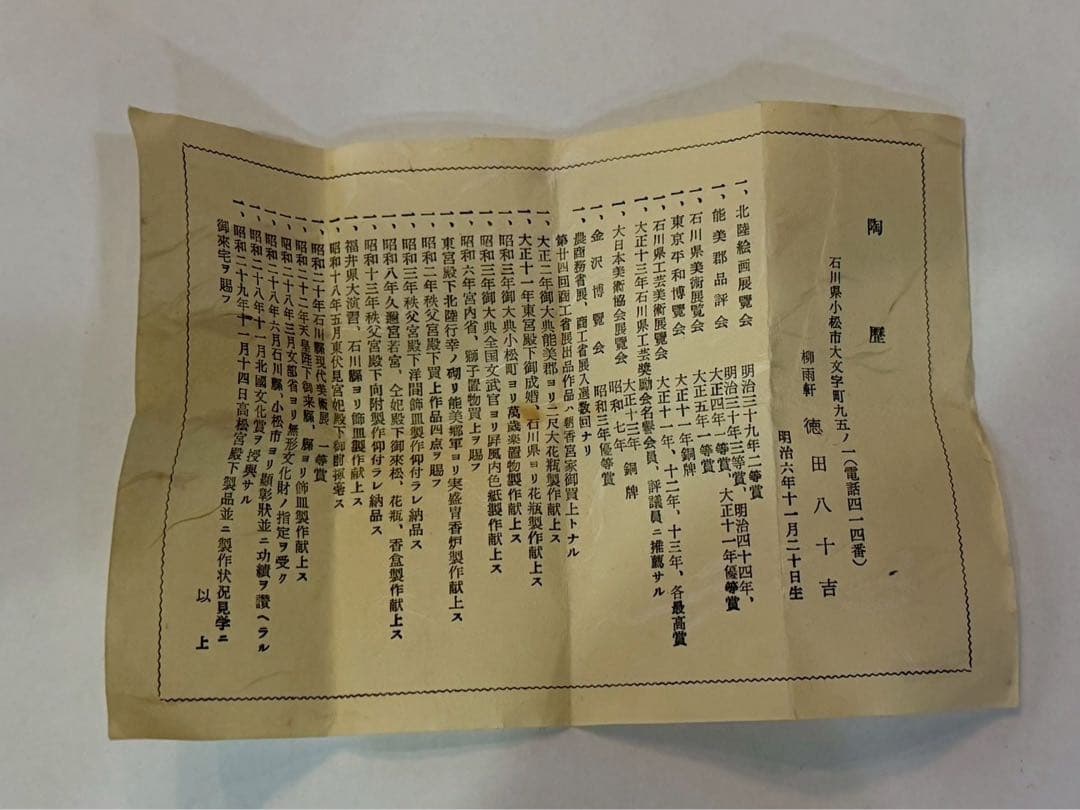 陶歴
石川県小松市大文字町九五ノ一（電話四一四番）
柳雨軒　徳田八十吉
明治六年十一月二十日生
一、北陸絵画展覧会　明治三十九年二等賞
一、能美郡品評会　明治三十年三等賞、明治四十四年、大正四年一等賞、大正十一年優等賞
一、石川県美術展覧会　大正五年一等賞
一、東京平和博覧会　大正十一年銅牌
一、石川県工芸美術展覧会　大正十一年、十二年、十三年、各最高賞
一、大正十三年石川県工芸奨励会名誉会員、評議員ニ推薦サル
一、大日本美術協会展覧会　大正十三年　銅牌
一、金沢博覧会　昭和七年　昭和三年優等賞
一、農商務省展、商工省展入選数回ナリ
第廿四回商工省展出品作品ハ朝香宮家御買上トナル
一、大正二年御大典能美郡ヨリ二尺大花瓶製作献上ス
一、大正十一年東宮殿下御成婚、石川県ヨリ花瓶製作献上ス
一、昭和三年御大典小松町ヨリ萬歳楽置物製作献上ス
一、昭和三年御大典全国文武官ヨリ屏風内色紙製作献上ス
一、昭和六年宮内省、獅子置物買上ヲ賜フ
一、東宮殿下北陸行幸ノ砌リ能美郷軍ヨリ実盛冑香炉製作献上ス
一、昭和二年秩父宮殿下買上作品四点ヲ賜フ
一、昭和三年秩父宮殿下洋間飾皿製作仰付ラレ納品ス
一、昭和八年久邇宮若宮、仝妃殿下御来松、花瓶、香盒製作献上ス
一、昭和十三年秩父宮殿下向附製作仰付ラレ納品ス
一、福井県大演習、石川縣ヨリ飾皿製作献上ス
一、昭和十八年五月東伏見宮妃殿下御前揮毫ス
一、昭和二十年石川縣現代美術展、一等賞
一、昭和二十二年天皇陛下御来縣、縣ヨリ飾皿製作献上ス
一、昭和二十八年三月文部省ヨリ無形文化財ノ指定ヲ受ク
一、昭和二十八年六月石川縣、小松市ヨリ顯彰狀並ニ功績ヲ讚ヘラル
一、昭和二十八年十一月北國文化賞ヲ授與サル
一、昭和二十九年十一月十四日高松宮殿下製品並ニ製作状況見学ニ
御來宅ヲ賜フ
以上